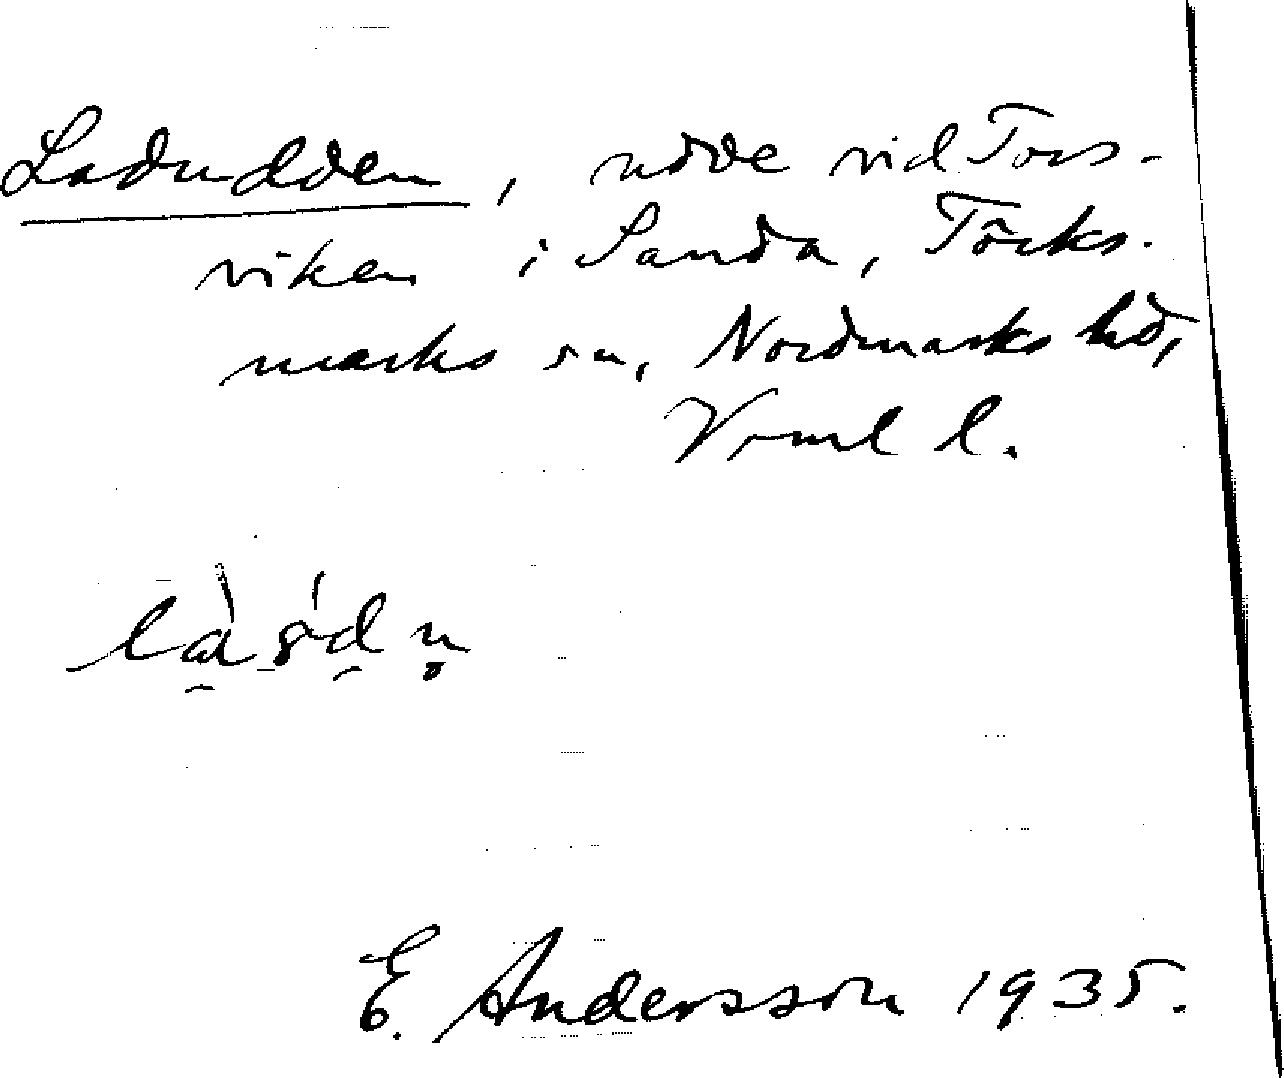 Ladudden, udde vid Tors-
viken i Sanda, Töcks-
marks sn, Nordmarks hd,
Vrml l.
E. Andersson 1935.